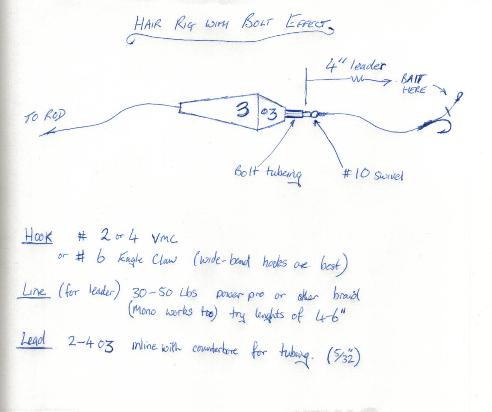 HAIR RIG WITH BOLT EFFECT.
4" leader
BAIT
HERE
TO ROD
3 03
Bolt tubing
#10 swivel
Hook # 2 or 4 VMC
or # 6 Eagle Claw (wide-bend hooks are best)
Line (for leader) 30-50 Lbs power pro or other braid
(Mono works too) try lenghts of 4-6"
Lead 2-4 oz inline with counterbore for tubing. (5/32")